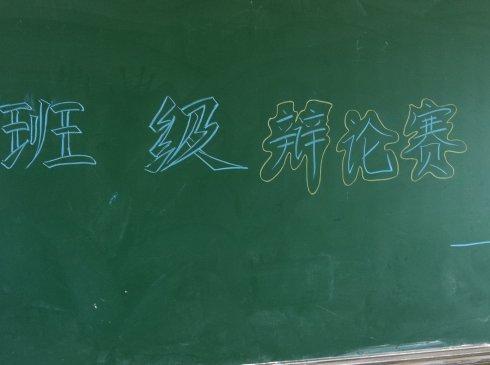 班级辩论赛